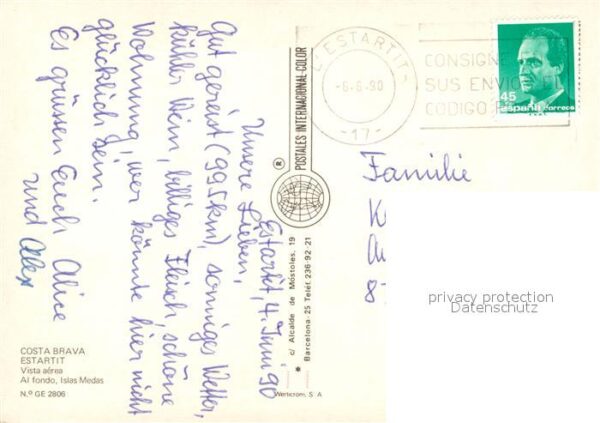 Estartit, 4. Juni 90
Unsere Lieben,
Gut gereist (995 km), sonniges Wetter,
kühler Wein, billiges Fleisch, schöne
Wohnung, wer könnte hier nicht
glücklich sein.
Es grüssen Euch Alice
und Alex
COSTA BRAVA
ESTARTIT
Vista aérea
Al fondo, Islas Medas
N.º GE 2806
POSTALES INTERNACIONAL COLOR
®
c/ Alcalde de Móstoles, 19
* Barcelona-25 Teléf. 236-92-21
L'ESTARTIT
-6.-6.-90
-17-
CONSIGNE
SUS ENVIO
CODIGO
45
españa correos
Familie
8
privacy protection
Datenschutz